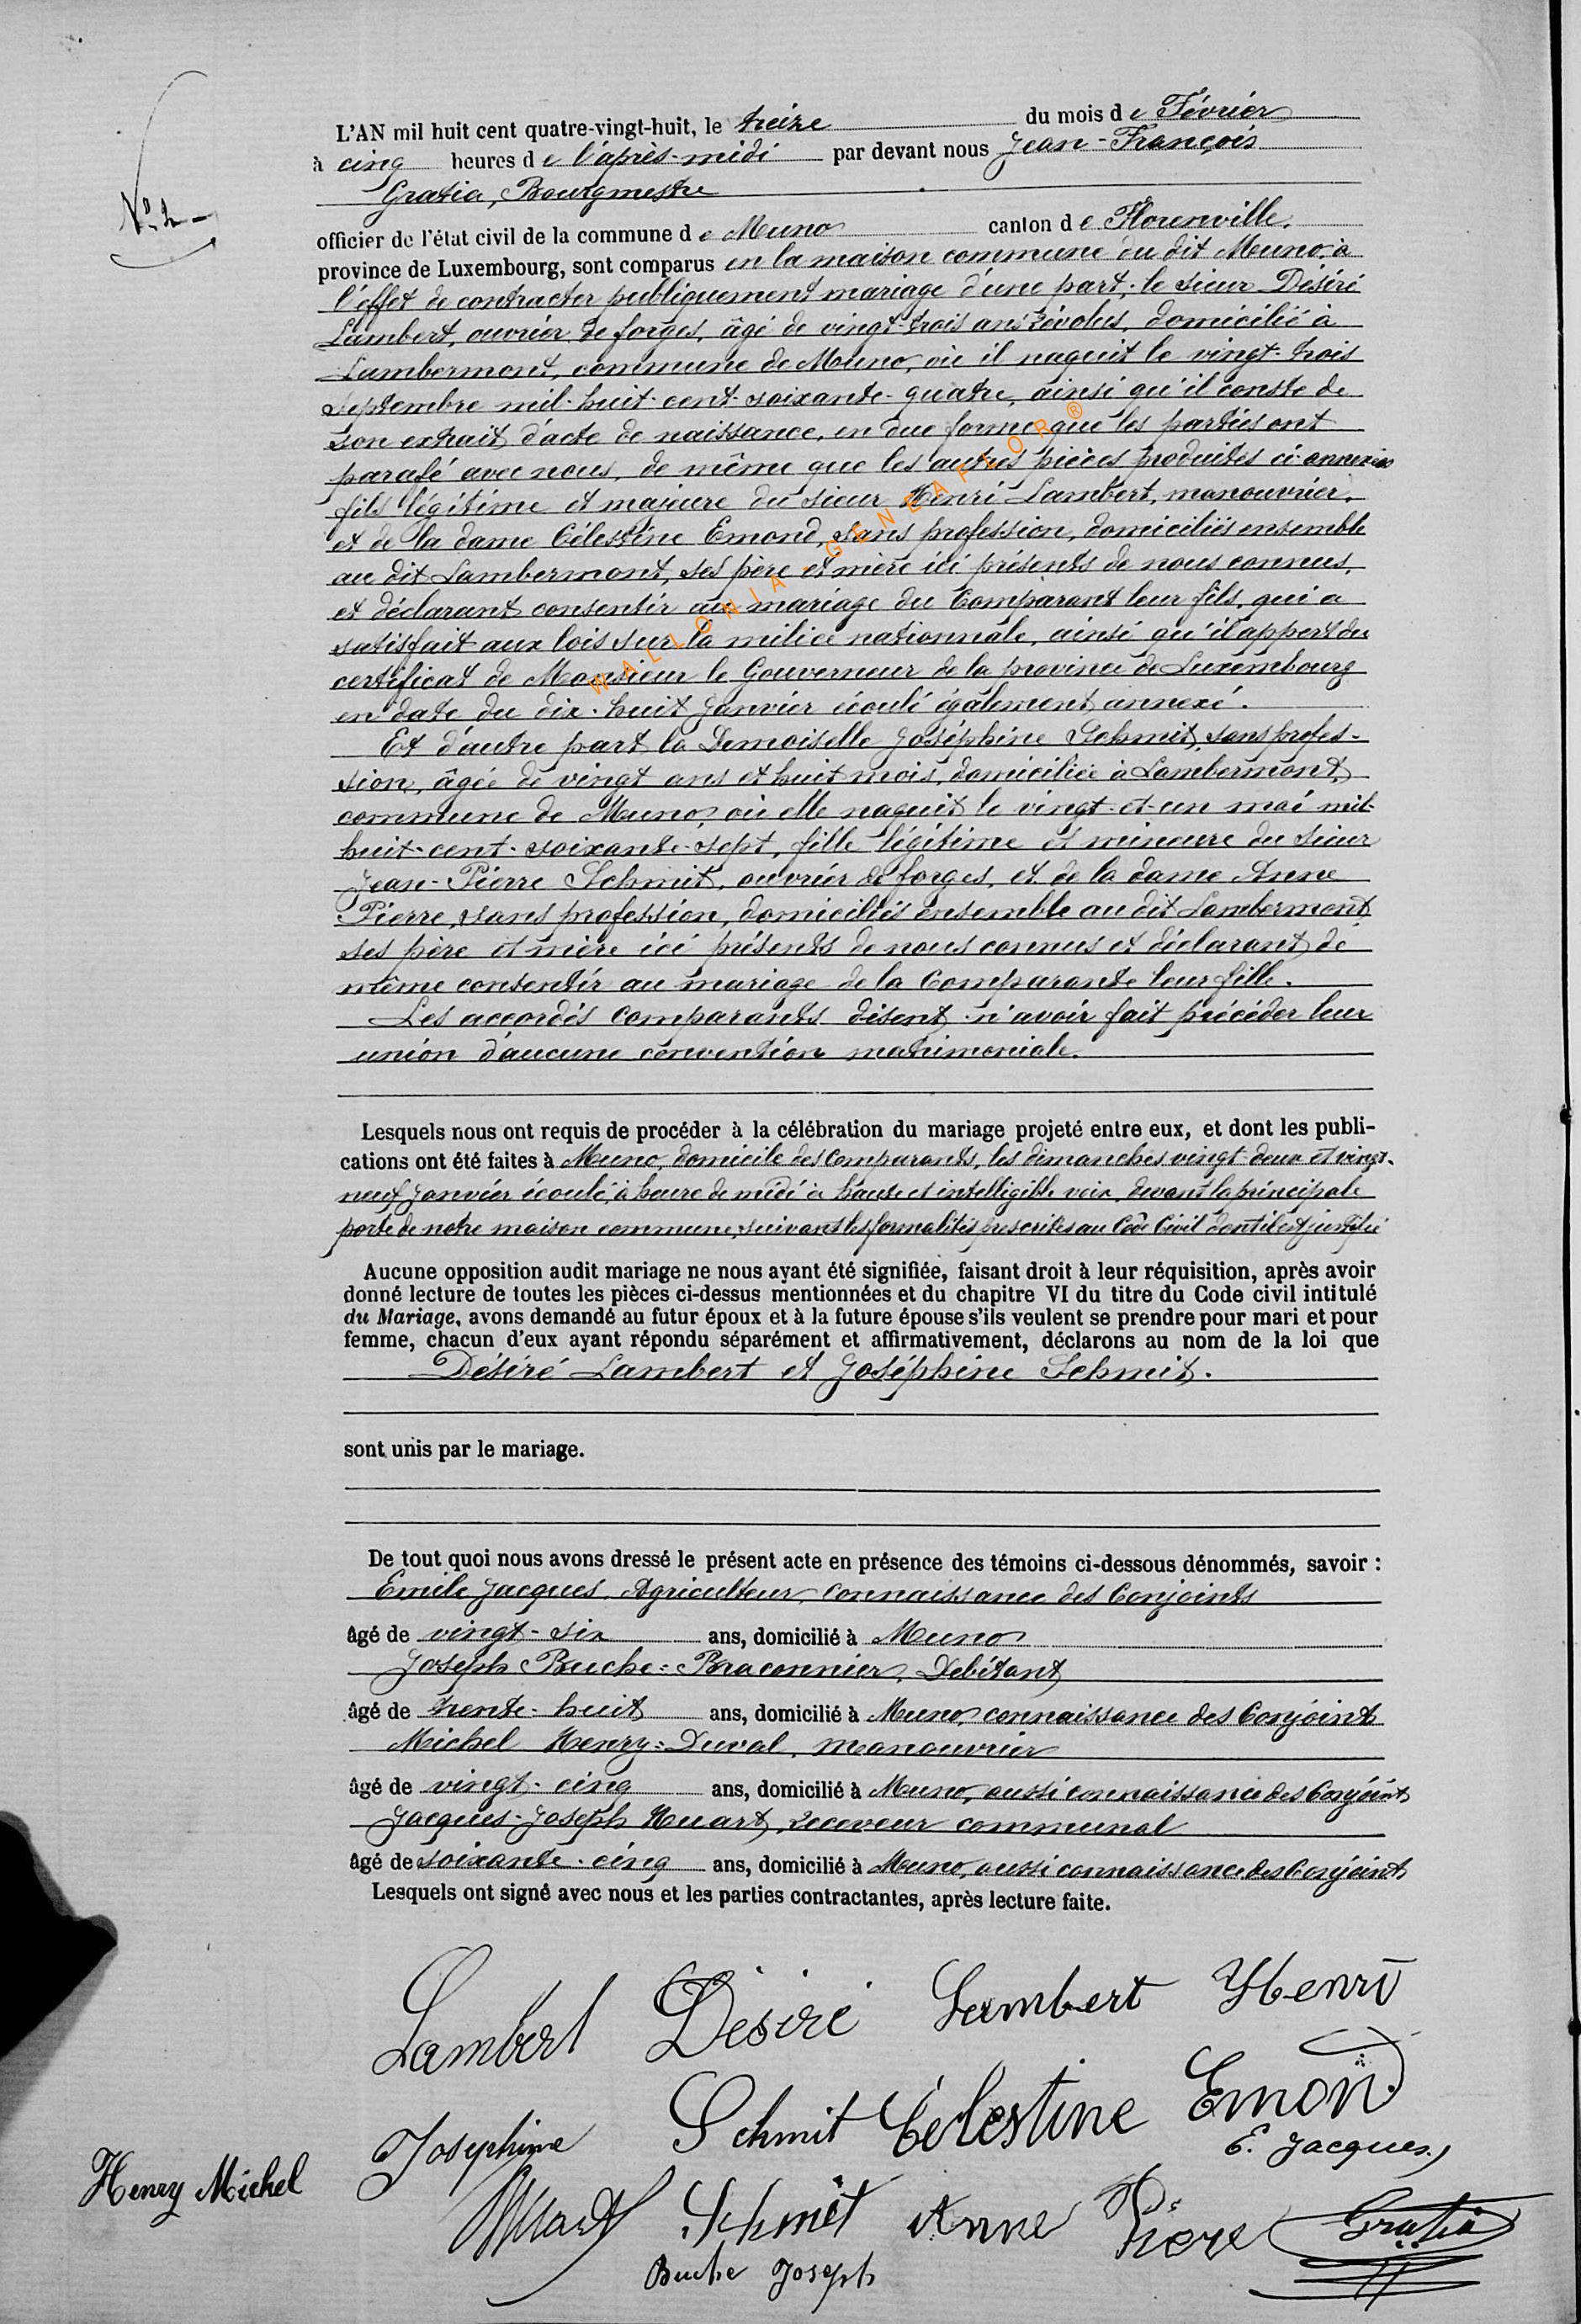 N° 2 -
L'AN mil huit cent quatre-vingt-huit, le treize du mois de Février
à cinq heures de l'après-midi par devant nous Jean-François
Gratia, Bourgmestre
officier de l'état civil de la commune de Muno canton de Florenville,
province de Luxembourg, sont comparus en la maison commune du dit Muno, à
l'effet de contracter publiquement mariage d'une part, le sieur Désiré
Lambert, ouvrier de forges, âgé de vingt-trois ans révolus, domicilié à
Lambermont, commune de Muno, où il naquit le vingt-trois
Septembre mil-huit-cent-soixante-quatre, ainsi qu'il conste de
son extrait d'acte de naissance, en due forme que les parties ont
parafé avec nous, de même que les autres pièces produites ci-annexées
fils légitime et majeure du sieur Henri Lambert, manouvrier,
et de la dame Célestine Emond, sans profession, domiciliés ensemble
au dit Lambermont, ses père et mère ici présents de nous connus,
et déclarant consentir au mariage du Comparant leur fils, qui a
satisfait aux lois sur la milice nationnale, ainsi qu'il appert du
certificat de Monsieur le Gouverneur de la province de Luxembourg
en date du dix-huit Janvier écoulé également annexé.
Et d'autre part la Demoiselle Joséphine Schmit, sans profes-
sion, âgée de vingt ans et huit mois, domiciliée à Lambermont,
commune de Muno, où elle naquit le vingt-et-un mai mil-
huit-cent-soixante-sept, fille légitime et mineure du sieur
Jean-Pierre Schmit, ouvrier de forges, et de la dame Anne
Pierre, sans profession, domiciliés ensemble au dit Lambermont
ses père et mère ici présents de nous connus et déclarant de
même consentir au mariage de la Comparante leur fille.
Les accordés comparants disent n'avoir fait précéder leur
union d'aucune convention matrimoniale.
Lesquels nous ont requis de procéder à la célébration du mariage projeté entre eux, et dont les publi-
cations ont été faites à Muno, domicile des comparants, les dimanches vingt-deux et vingt-
neuf Janvier écoulé, à heure de midi à haute et intelligible voix, devant la principale
porte de notre maison commune, suivant les formalités prescrites au Code Civil dont il est justifié
Aucune opposition audit mariage ne nous ayant été signifiée, faisant droit à leur réquisition, après avoir
donné lecture de toutes les pièces ci-dessus mentionnées et du chapitre VI du titre du Code civil intitulé
du Mariage, avons demandé au futur époux et à la future épouse s'ils veulent se prendre pour mari et pour
femme, chacun d'eux ayant répondu séparément et affirmativement, déclarons au nom de la loi que
Désiré Lambert et Joséphine Schmit.
sont unis par le mariage.
De tout quoi nous avons dressé le présent acte en présence des témoins ci-dessous dénommés, savoir :
Emile Jacques, Agriculteur, connaissance des Conjoints
âgé de vingt-six ans, domicilié à Muno
Joseph Buche=Braconnier, Débitant
âgé de trente-huit ans, domicilié à Muno, connaissance des Conjoints
Michel Henry=Duval, manouvrier
âgé de vingt-cinq ans, domicilié à Muno, aussi connaissance des Conjoints
Jacques-Joseph Huart, receveur communal
âgé de soixante-cinq ans, domicilié à Muno, aussi connaissance des Conjoints
Lesquels ont signé avec nous et les parties contractantes, après lecture faite.
Lambert Désiré Lambert Henri
Josephine Schmit Célestine Emond
E. Jacques
Henry Michel
Huart Schmit Anne Piere Gratia
Buche Joseph
WALLONIA GENEAFLOR ®